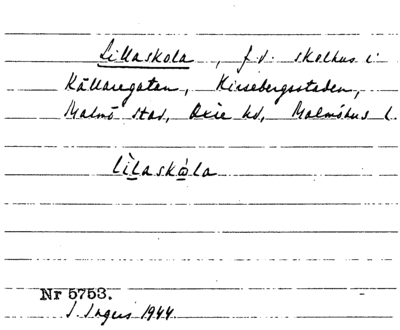 Lillaskola, f.d. skolhus i
Källaregatan, Kirsebergsstaden,
Malmö stad, Oxie hd, Malmöhus l.
lìlaskòla
Nr 5753.
I. Ingers 1944